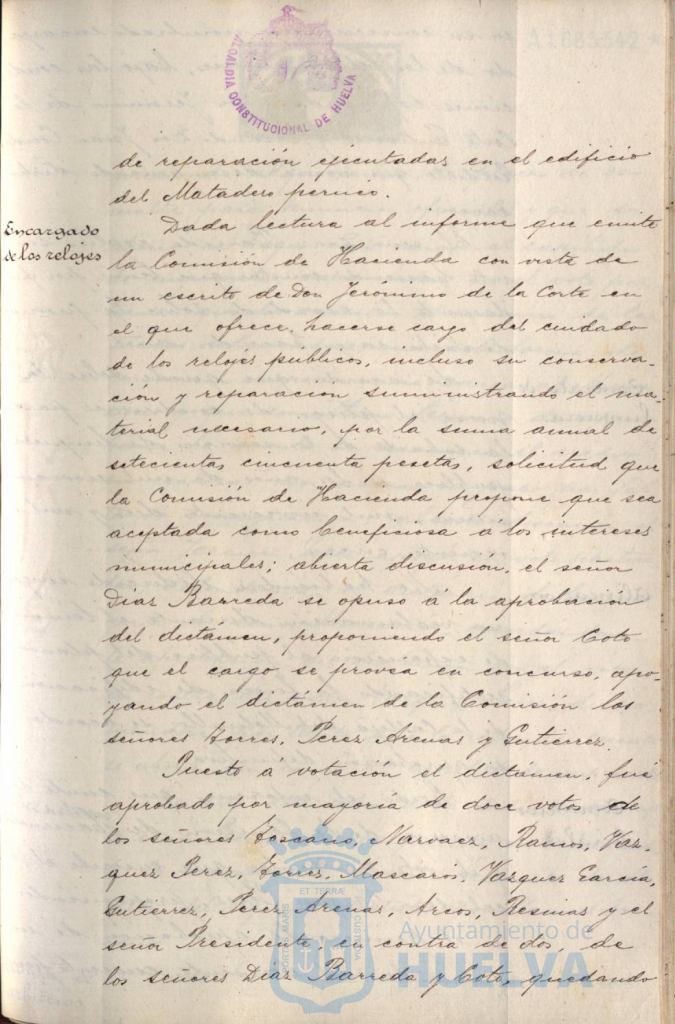 ALCALDÍA CONSTITUCIONAL DE HUELVA
de reparación ejecutadas en el edificio
del Matadero pernio.
Encargado
de los relojes
Dada lectura al informe que emite
la Comisión de Hacienda con vista de
un escrito de Don Jerónimo de la Corte en
el que ofrece hacerse cargo del cuidado
de los relojes públicos, incluso su conserva-
ción y reparación suministrando el ma-
terial necesario, por la suma anual de
setecientas cincuenta pesetas, solicitud que
la Comisión de Hacienda propone que sea
aceptada como beneficiosa á los intereses
municipales; abierta discusión, el señor
Diaz Barreda se opuso á la aprobación
del dictámen, proponiendo el señor Coto
que el cargo se provéa en concurso, apo-
yando el dictámen de la Comisión los
señores Torres, Perez Arenas y Gutierrez.
Puesto á votación el dictámen, fué
aprobado por mayoría de doce votos de
los señores Toscano, Narvaez, Ramos, Vaz-
quez Perez, Torres, Mascarós, Vazquez García,
Gutierrez, Perez Arenas, Arcos, Resinas y el
señor Presidente, en contra de dos, de
los señores Diaz Barreda y Coto, quedando
ET TERRÆ
PORTUS MARIS
CUSTODIA
Ayuntamiento de
HUELVA